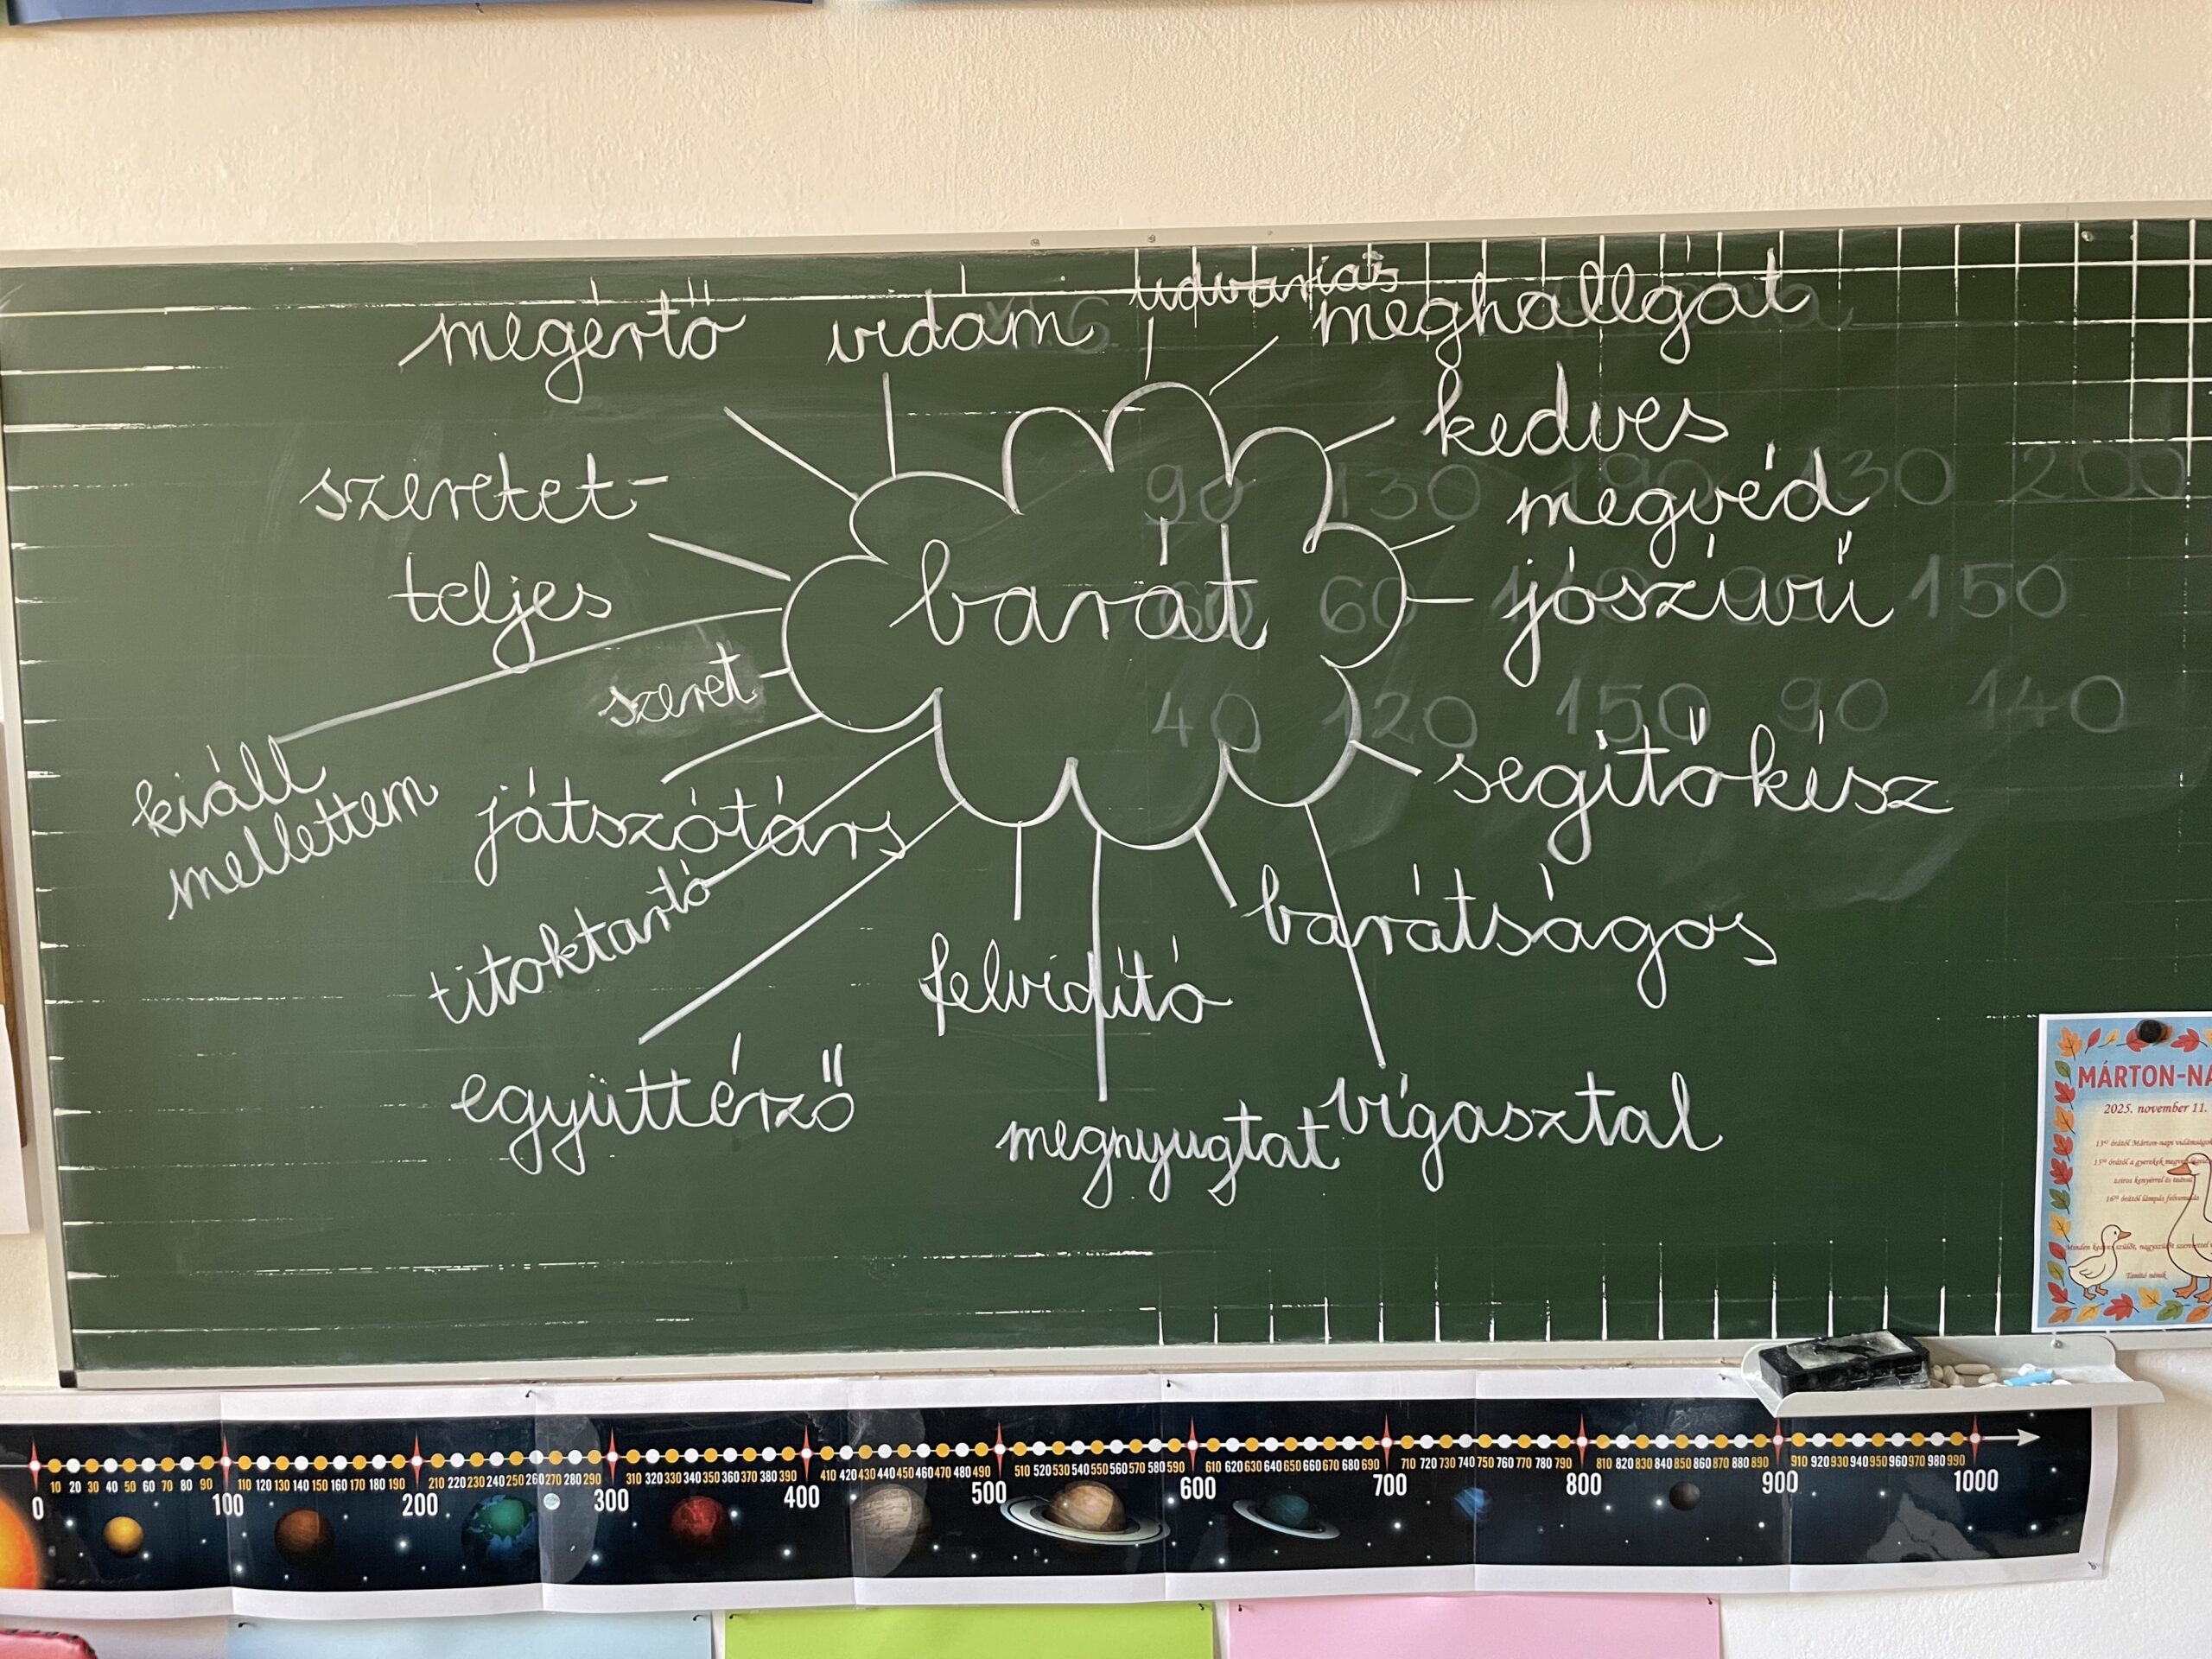 udvarias
megértő vidám meghallgat
kedves
szeretet-
teljes
megvéd
barát
jószívű
szeret
kiáll
mellettem
játszótárs
segítőkész
titoktartó
barátságos
felvidító
együttérző
megnyugtat
vígasztal
90 130 190 130 200
60 60 150
40 120 150 90 140
MÁRTON-NA
2025. november 11.
10 20 30 40 50 60 70 80 90 110 120 130 140 150 160 170 180 190 210 220 230 240 250 260 270 280 290 310 320 330 340 350 360 370 380 390 410 420 430 440 450 460 470 480 490 510 520 530 540 550 560 570 580 590 610 620 630 640 650 660 670 680 690 710 720 730 740 750 760 770 780 790 810 820 830 840 850 860 870 880 890 910 920 930 940 950 960 970 980 990
0 100 200 300 400 500 600 700 800 900 1000